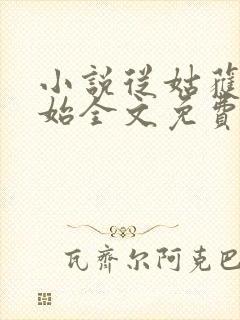 小說從姑獲
始全文免費
瓦齊尔阿克巴